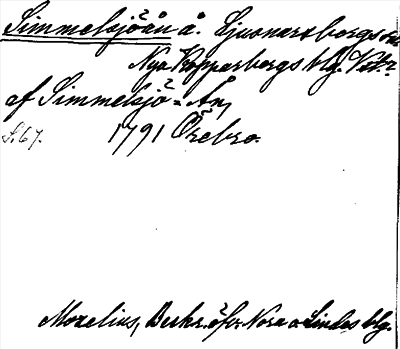 Simmelsjöån å. Ljusnarsbergs sn
Nya Kopparbergs blg. Vstm?
af Simmelsjö-Ån,
S.67. 1791 Örebro.
Mozelius, Beskr. öfv. Nora o Lindes blg.